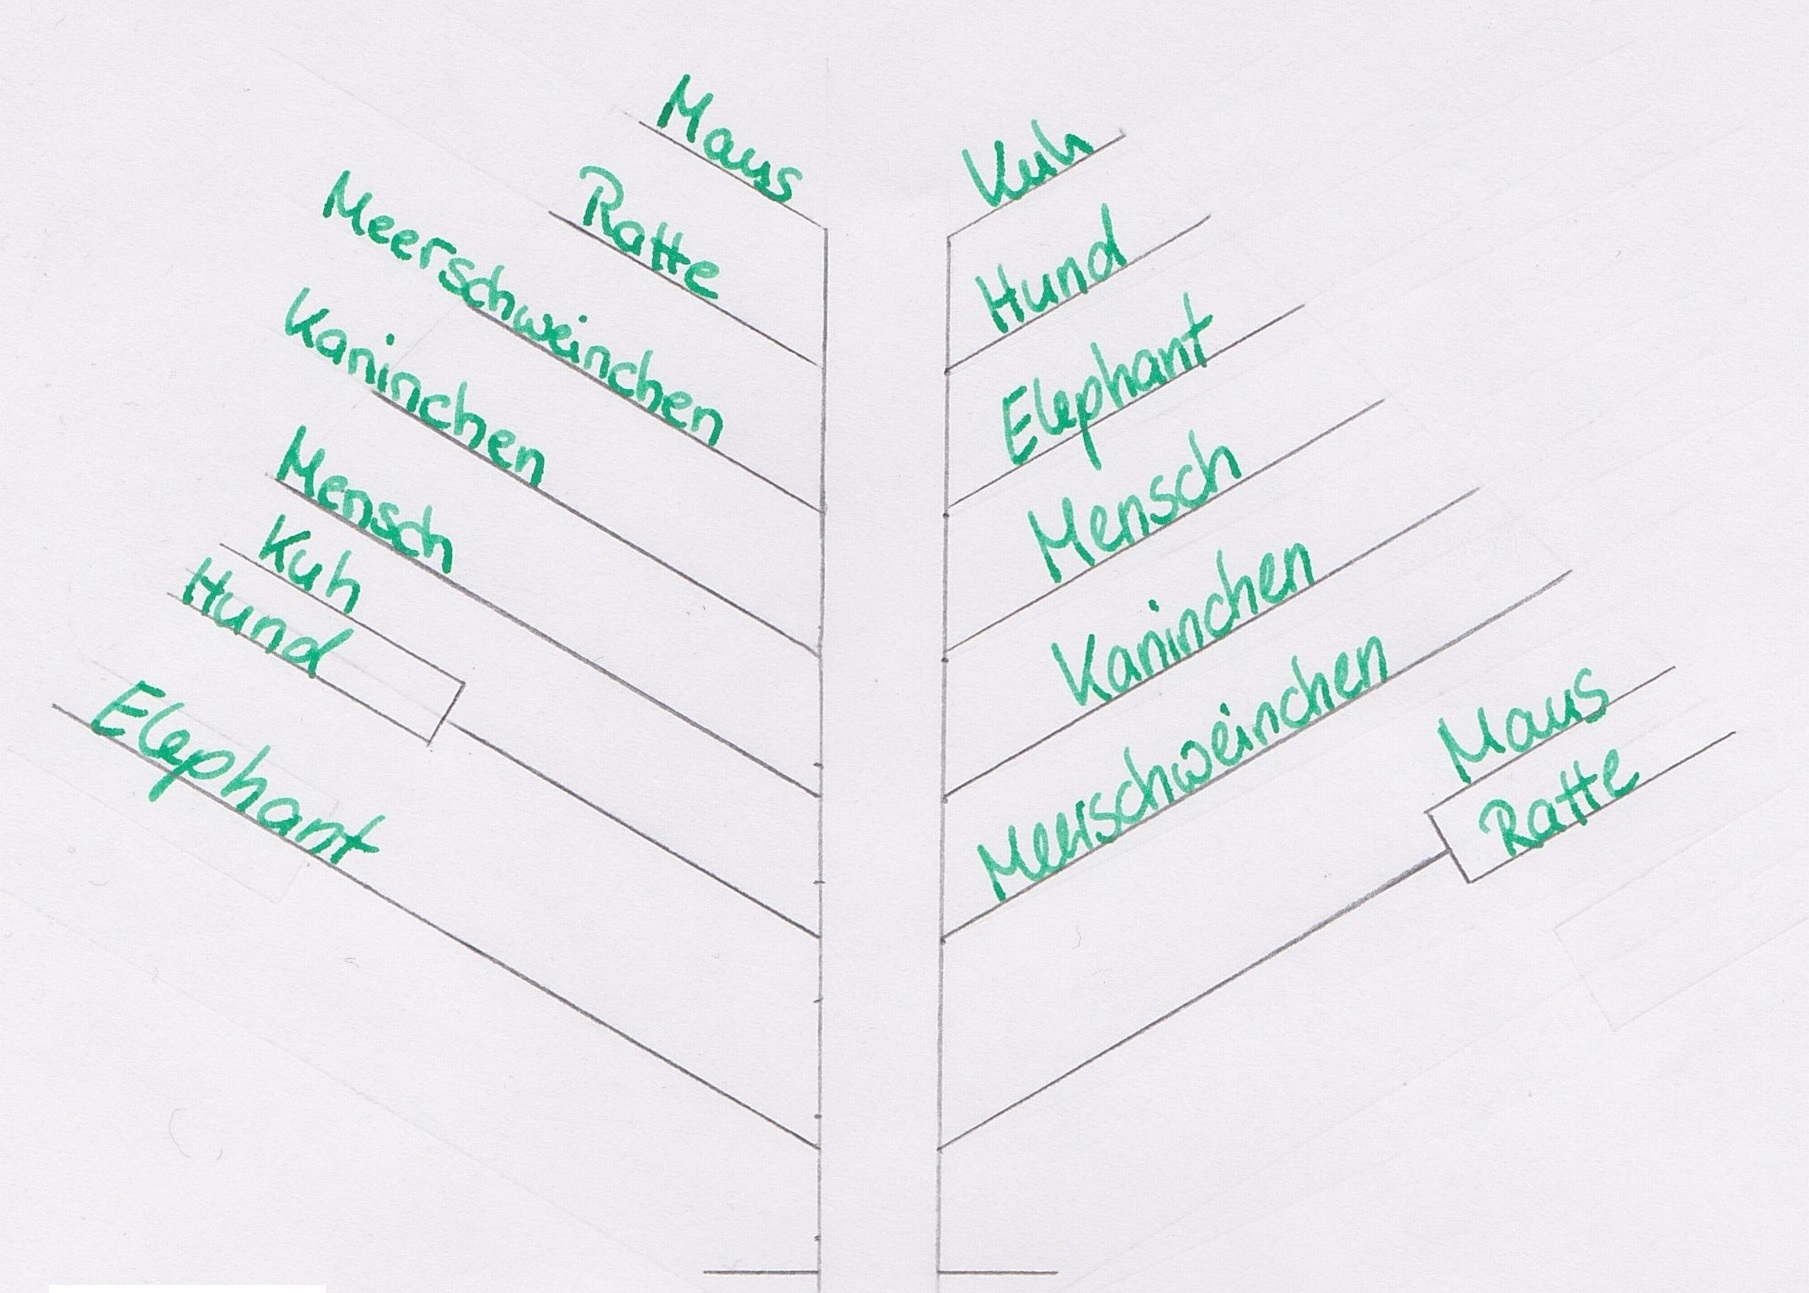 Maus
Ratte
Meerschweinchen
Kaninchen
Mensch
Kuh
Hund
Elephant
Kuh
Hund
Elephant
Mensch
Kaninchen
Meerschweinchen
Maus
Ratte